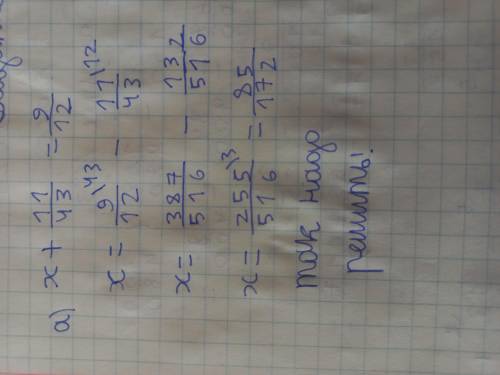 а) x + 11/43 = 9/12
x = 9\43/12 - 11\12/43
x = 387/516 - 132/516
x = 255\3/516 = 85/172
так надо
решить!